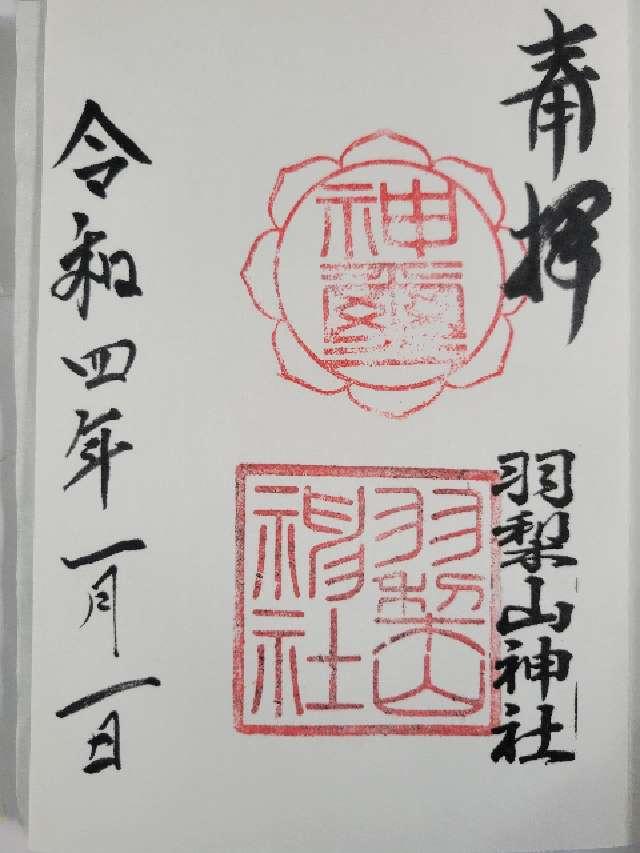 奉拝
羽梨山神社
神璽
羽梨山
神社
令和四年一月一日